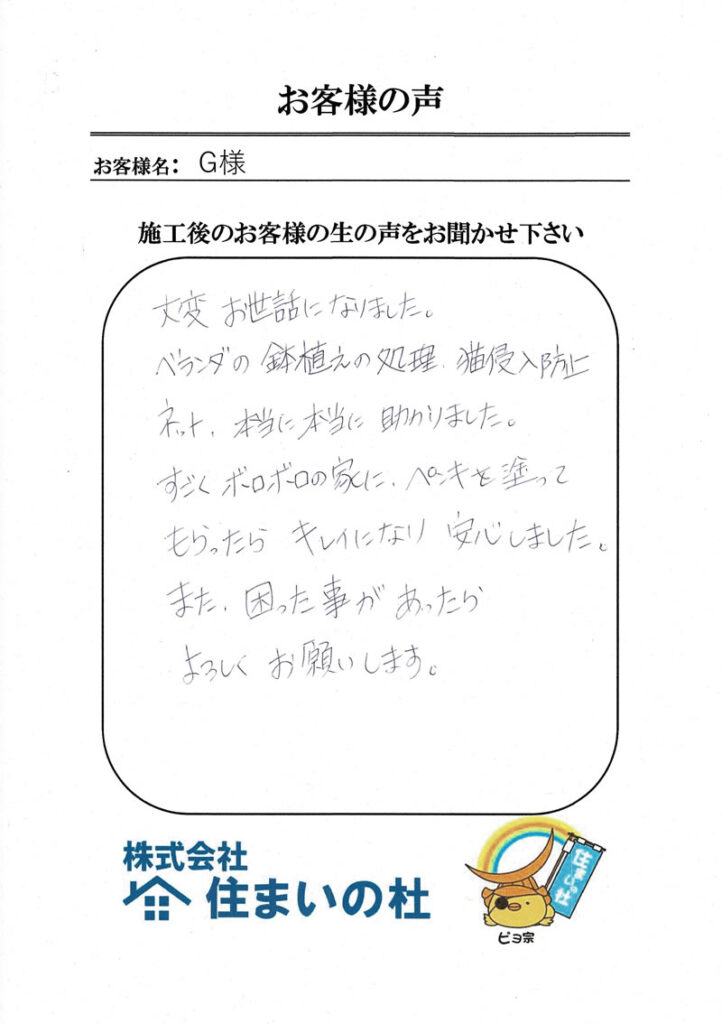 お客様の声
お客様名： G様
施工後のお客様の生の声をお聞かせ下さい
大変 お世話になりました。
ベランダの 鉢植えの処理、猫侵入防止
ネット、本当に本当に 助かりました。
すごく ボロボロの家に、ペンキを塗って
もらったら キレイになり 安心しました。
また、困った事が あったら
よろしく お願いします。
株式会社
住まいの杜
住まいの杜
ピヨ宗